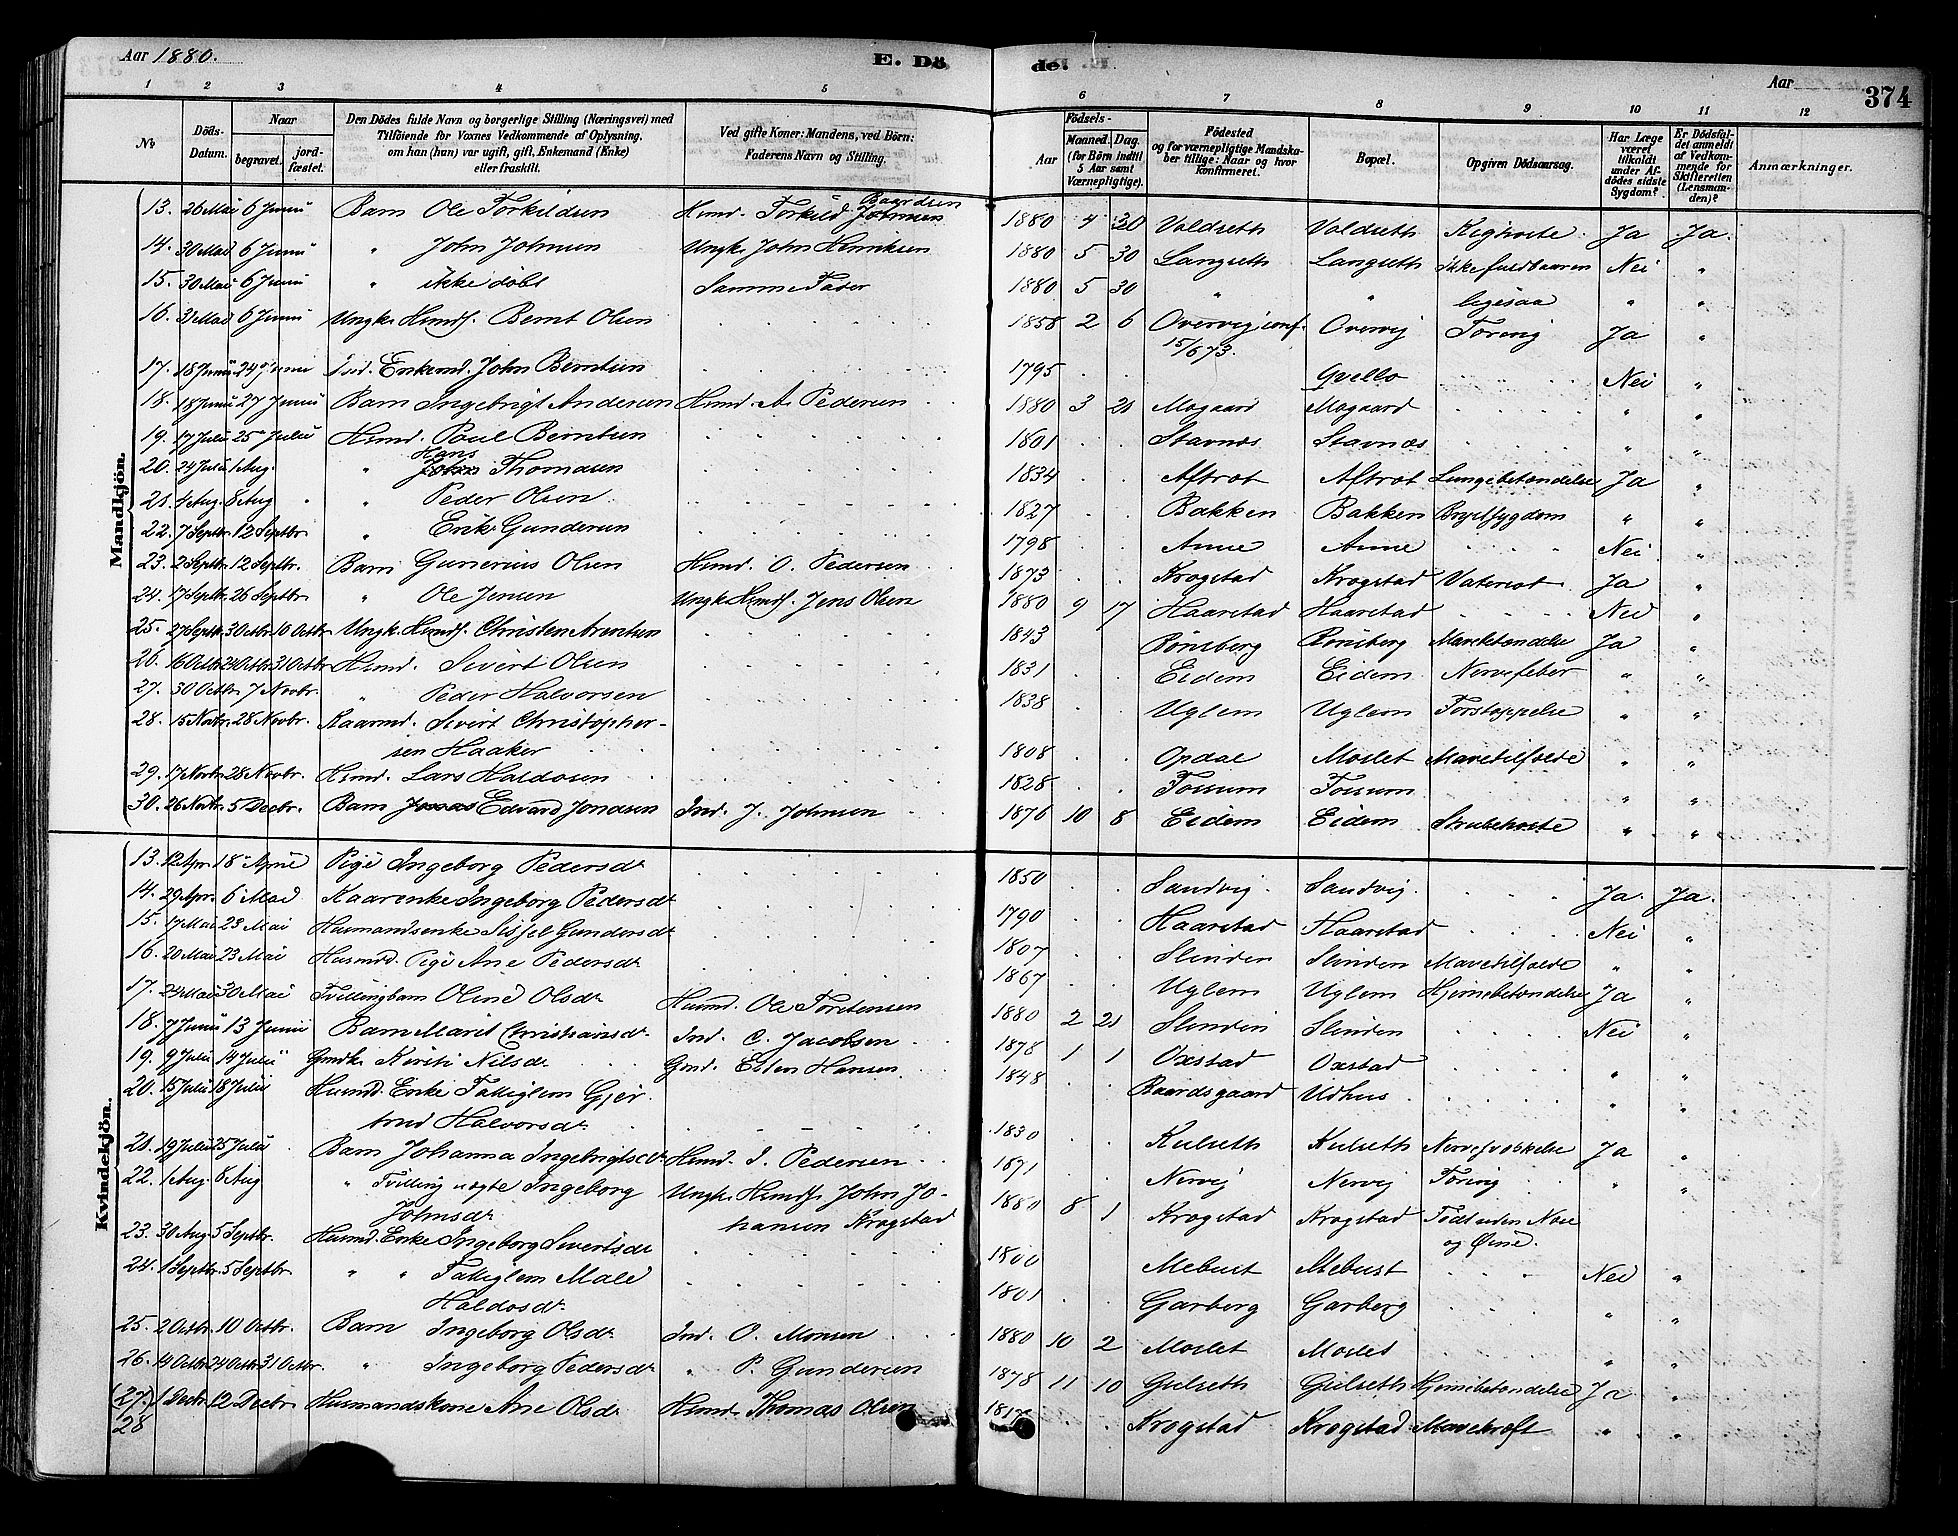 Aar 1880. E. Dö de. Aar 374
1 2 3 4 5 6 7 8 9 10 11 12
No Döds-Datum. Naar begravet. jord-fæstet. Den Dödes fulde Navn og borgerlige Stilling (Næringsvei) med Tilföiende for Voxnes Vedkommende af Oplysning, om han (hun) var ugift, gift, Enkemand (Enke) eller fraskilt. Ved gifte Koner: Mandens, ved Börn: Faderens Navn og Stilling. Födsels- Aar Maaned. Dag. (for Börn indtil 5 Aar samt Værnepligtige). Födested og for værnepligtige Mandskaber tillige: Naar og hvor konfirmeret. Bopæl. Opgiven Dödsaarsag. Har Læge været tilkaldt under Afdödes sidste Sygdom? Er Dödsfaldet anmeldt af Vedkommende for Skifteretten (Lensmanden)? Anmærkninger.
Mandkjön.
13. 26 Mai 6 Juni Barn Ole Torkildsen Husmd. Torkild Johnsen Baardsen 1880 4 30 Valdseth Valdseth Kighoste. Ja Ja.
14. 30 Mai 6 Juni " John Johnsen Ungk. John Henriksen 1880 5 30 Langseth Langseth ikke fuldbaaren Nei "
15. 30 Mai 6 Juni " ikke döbt Samme Fader 1880 5 30 " " ligesaa " "
16. 31 Mai 6 Juni Ungk. Husmdf. Bernt Olsen 1858 2 6 Overvig conf. 15/6 73. Overvig Tæring Ja "
17. 18 Juni 24 Juni Ind. Enkemd. John Berntsen 1795 Gvello Nei "
18. 18 Juni 27 Juni Barn Ingebrigt Andersen Husmd. A. Pedersen 1880 3 21 Mogaard Mogaard " "
19. 17 Juli 25 Juli Husmd. Paul Berntsen 1801 Stavnæs Stavnæs " "
20. 24 Juli 1 Aug. " Hans Thomasen 1834 Aftrøt Aftrøt Lungebetændelse Ja "
21. 4 Aug. 8 Aug " Peder Olsen 1827 Bakken Bakken Brystsygdom " "
22. 7 Septbr. 12 Septbr. " Erik Gundersen 1798 Aune Aune Nei "
23. 2 Septbr. 12 Septbr. Barn Gunerius Olsen Husmd. O. Pedersen 1873 Krogstad Krogstad Vatersot. Ja "
24. 17 Septbr. 26 Septbr " Ole Jensen Ungk. Husmdf. Jens Olsen 1880 9 17 Haarstad Haarstad Nei "
25. 27 Septbr. 3 Octbr. 10 Octbr Ungk. Husmdf. Christen Arntsen 1843 Rønsberg Rønsberg Mavebetændelse Ja "
26. 16 Octbr 24 Octbr 31 Octbr Husmd. Sivert Olsen 1831 Eidem Eidem Nervefeber " "
27. 30 Octbr. 7 Novbr. " Peder Halvorsen 1838 Uglem Uglem Forstoppelse " "
28. 15 Novbr. 28 Novbr. Kaarmd. Sivert Christopher-
sen Haaker 1808 Opdal Moslet Mavetilfælde " "
29. 17 Novbr. 28 Novbr. Husmd. Lars Haldosen 1828 Fossum Fossum " "
30. 26 Novbr. 5 Decbr. Barn Edvard Jonasen Ind. J. Johnsen 1876 10 8 Eidem Eidem Strubehoste " "
Kvindekjön.
13. 12 Apr. 18 April Pige Ingeborg Pedersdr 1850 Sandvig. Sandvig. Ja. Ja.
14. 29 Apr. 6 Mai Kaarenke Ingeborg Pedersdr 1790 Haarstad Haarstad Nei "
15. 17 Mai 23 Mai Husmandsenke Sissel Gundersdr 1807 Slinden Slinden Mavetilfælde " "
16. 20 Mai 23 Mai Husmd. Pige Ane Pedersdr. 1867 Uglem Uglem Hjernebetændelse Ja "
17. 24 Mai 30 Mai Tvillingbarn Oline Olsdr Husmd. Ole Torstensen 1880 2 21 Slinden Slinden Nei "
18. 7 Juni 13 Juni Barn Marit Christiansdr. Ind. C. Jacobsen 1878 1 1 Oxstad Oxstad " "
19. 9 Juli 14 Juli Gmdk. Kirsti Nilsdr. Gmd. Esten Hansen 1848 Baardsgaard Udhus " "
20. 15 Juli 18 Juli Husmd. Enke Fattiglem Gjer-
trud Halvorsdr. 1830 Kulseth Kulseth Nervesvækkelse Ja "
21. 19 Juli 25 Juli Barn Johanna Ingebrigtsdr. Husmd. I. Pedersen 1871 Nervig Nervig Tæring " "
22. 1 Aug. 8 Aug " Tvilling uægte Ingeborg Ungk. Husmdf. John Jo-
Johnsdr hansen Krogstad 1880 8 1 Krogstad Krogstad Født uden Næse
og Øine.
23. 30 Aug. 5 Septbr. Husmd. Enke Ingeborg Sivertsdr 1800 Mebust Mebust Nei "
24. 1 Septbr. 5 Septbr. " " Fattiglem Mali
Haldosdr. 1801 Garberg Garberg " "
25. 2 Octbr. 10 Octbr. Barn Ingeborg Olsdr. Ind. O. Monsen 1880 10 2 Moslet Moslet " "
26. 14 Octbr 24 Octbr 31 Octbr. " Ingeborg Pedersdr. " P. Gundersen 1878 11 10 Gulseth Gulseth Hjernebetændelse Ja "
(27.) 1 Decbr 12 Decbr. Husmandskone Ane Olsdr. Husmd. Thomas Olsen Krogstad Krogstad Mavekræft " "
28